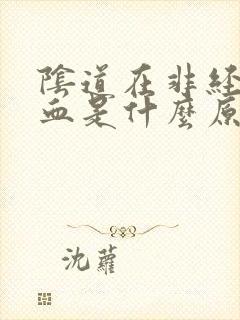 陰道在非經
血是什麼原
沈蘿